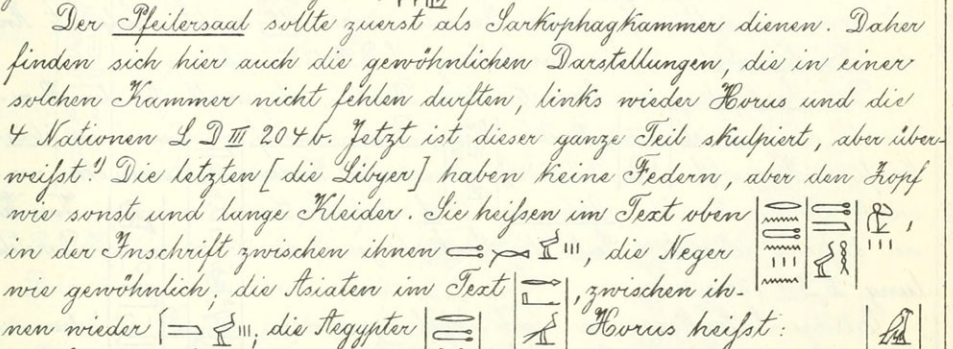 Der Pfeilersaal sollte zuerst als Sarkophagkammer dienen. Daher
finden sich hier auch die gewöhnlichen Darstellungen, die in einer
solchen Kammer nicht fehlen durften, links wieder Horus und die
4 Nationen L D III 204b. Jetzt ist dieser ganze Teil skulpiert, aber über-
weißt.¹⁾ Die letzten [die Libyer] haben keine Federn, aber den Zopf
wie sonst und lange Kleider. Sie heißen im Text oben ,
in der Inschrift zwischen ihnen , die Neger
wie gewöhnlich, die Asiaten im Text , zwischen ih-
nen wieder ; die Aegypter Horus heißt: